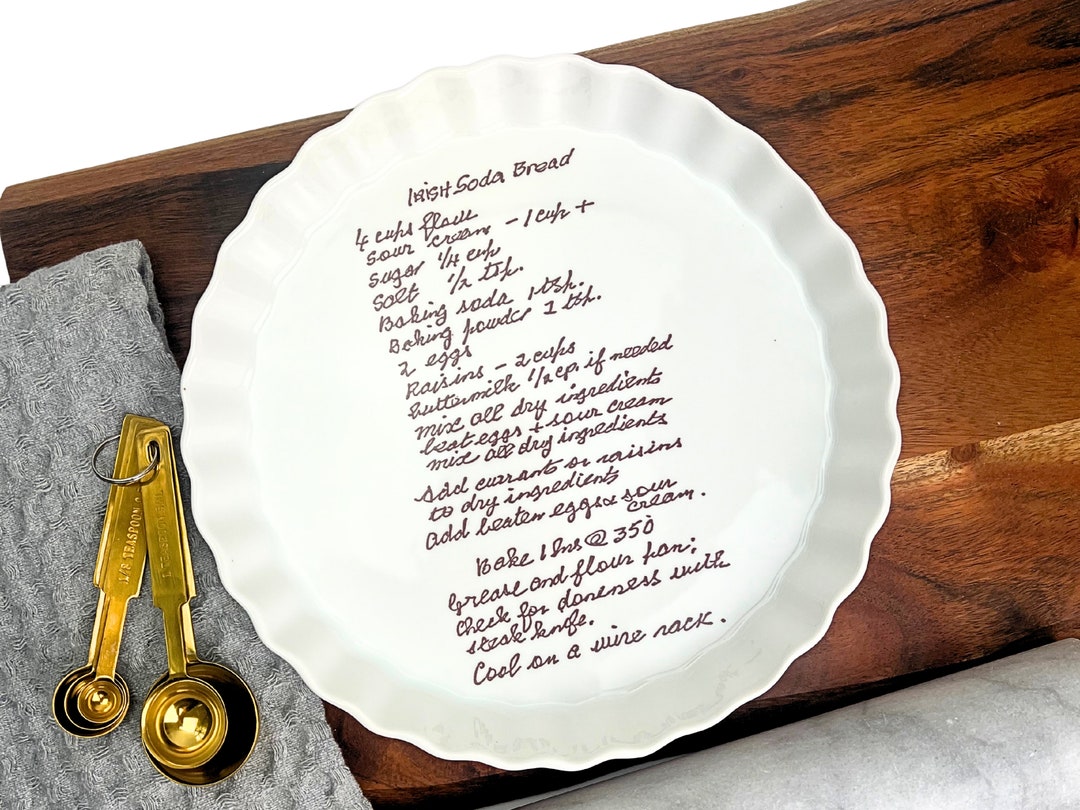 IRISH Soda Bread
4 cups flour
sour cream - 1 cup +
sugar 1/4 cup
Salt 1/2 tsp.
Baking soda 1 tsp.
Baking powder 1 tsp.
2 eggs
Raisins - 2 cups
buttermilk 1/2 cp. if needed
mix all dry ingredients
beat eggs + sour cream
mix all dry ingredients
add currants or raisins
to dry ingredients
add beaten eggs & sour
cream.
Bake 1 hrs @ 350
Grease and flour pan;
check for doneness with
steak knife.
Cool on a wire rack.
1/8 TEASPOON